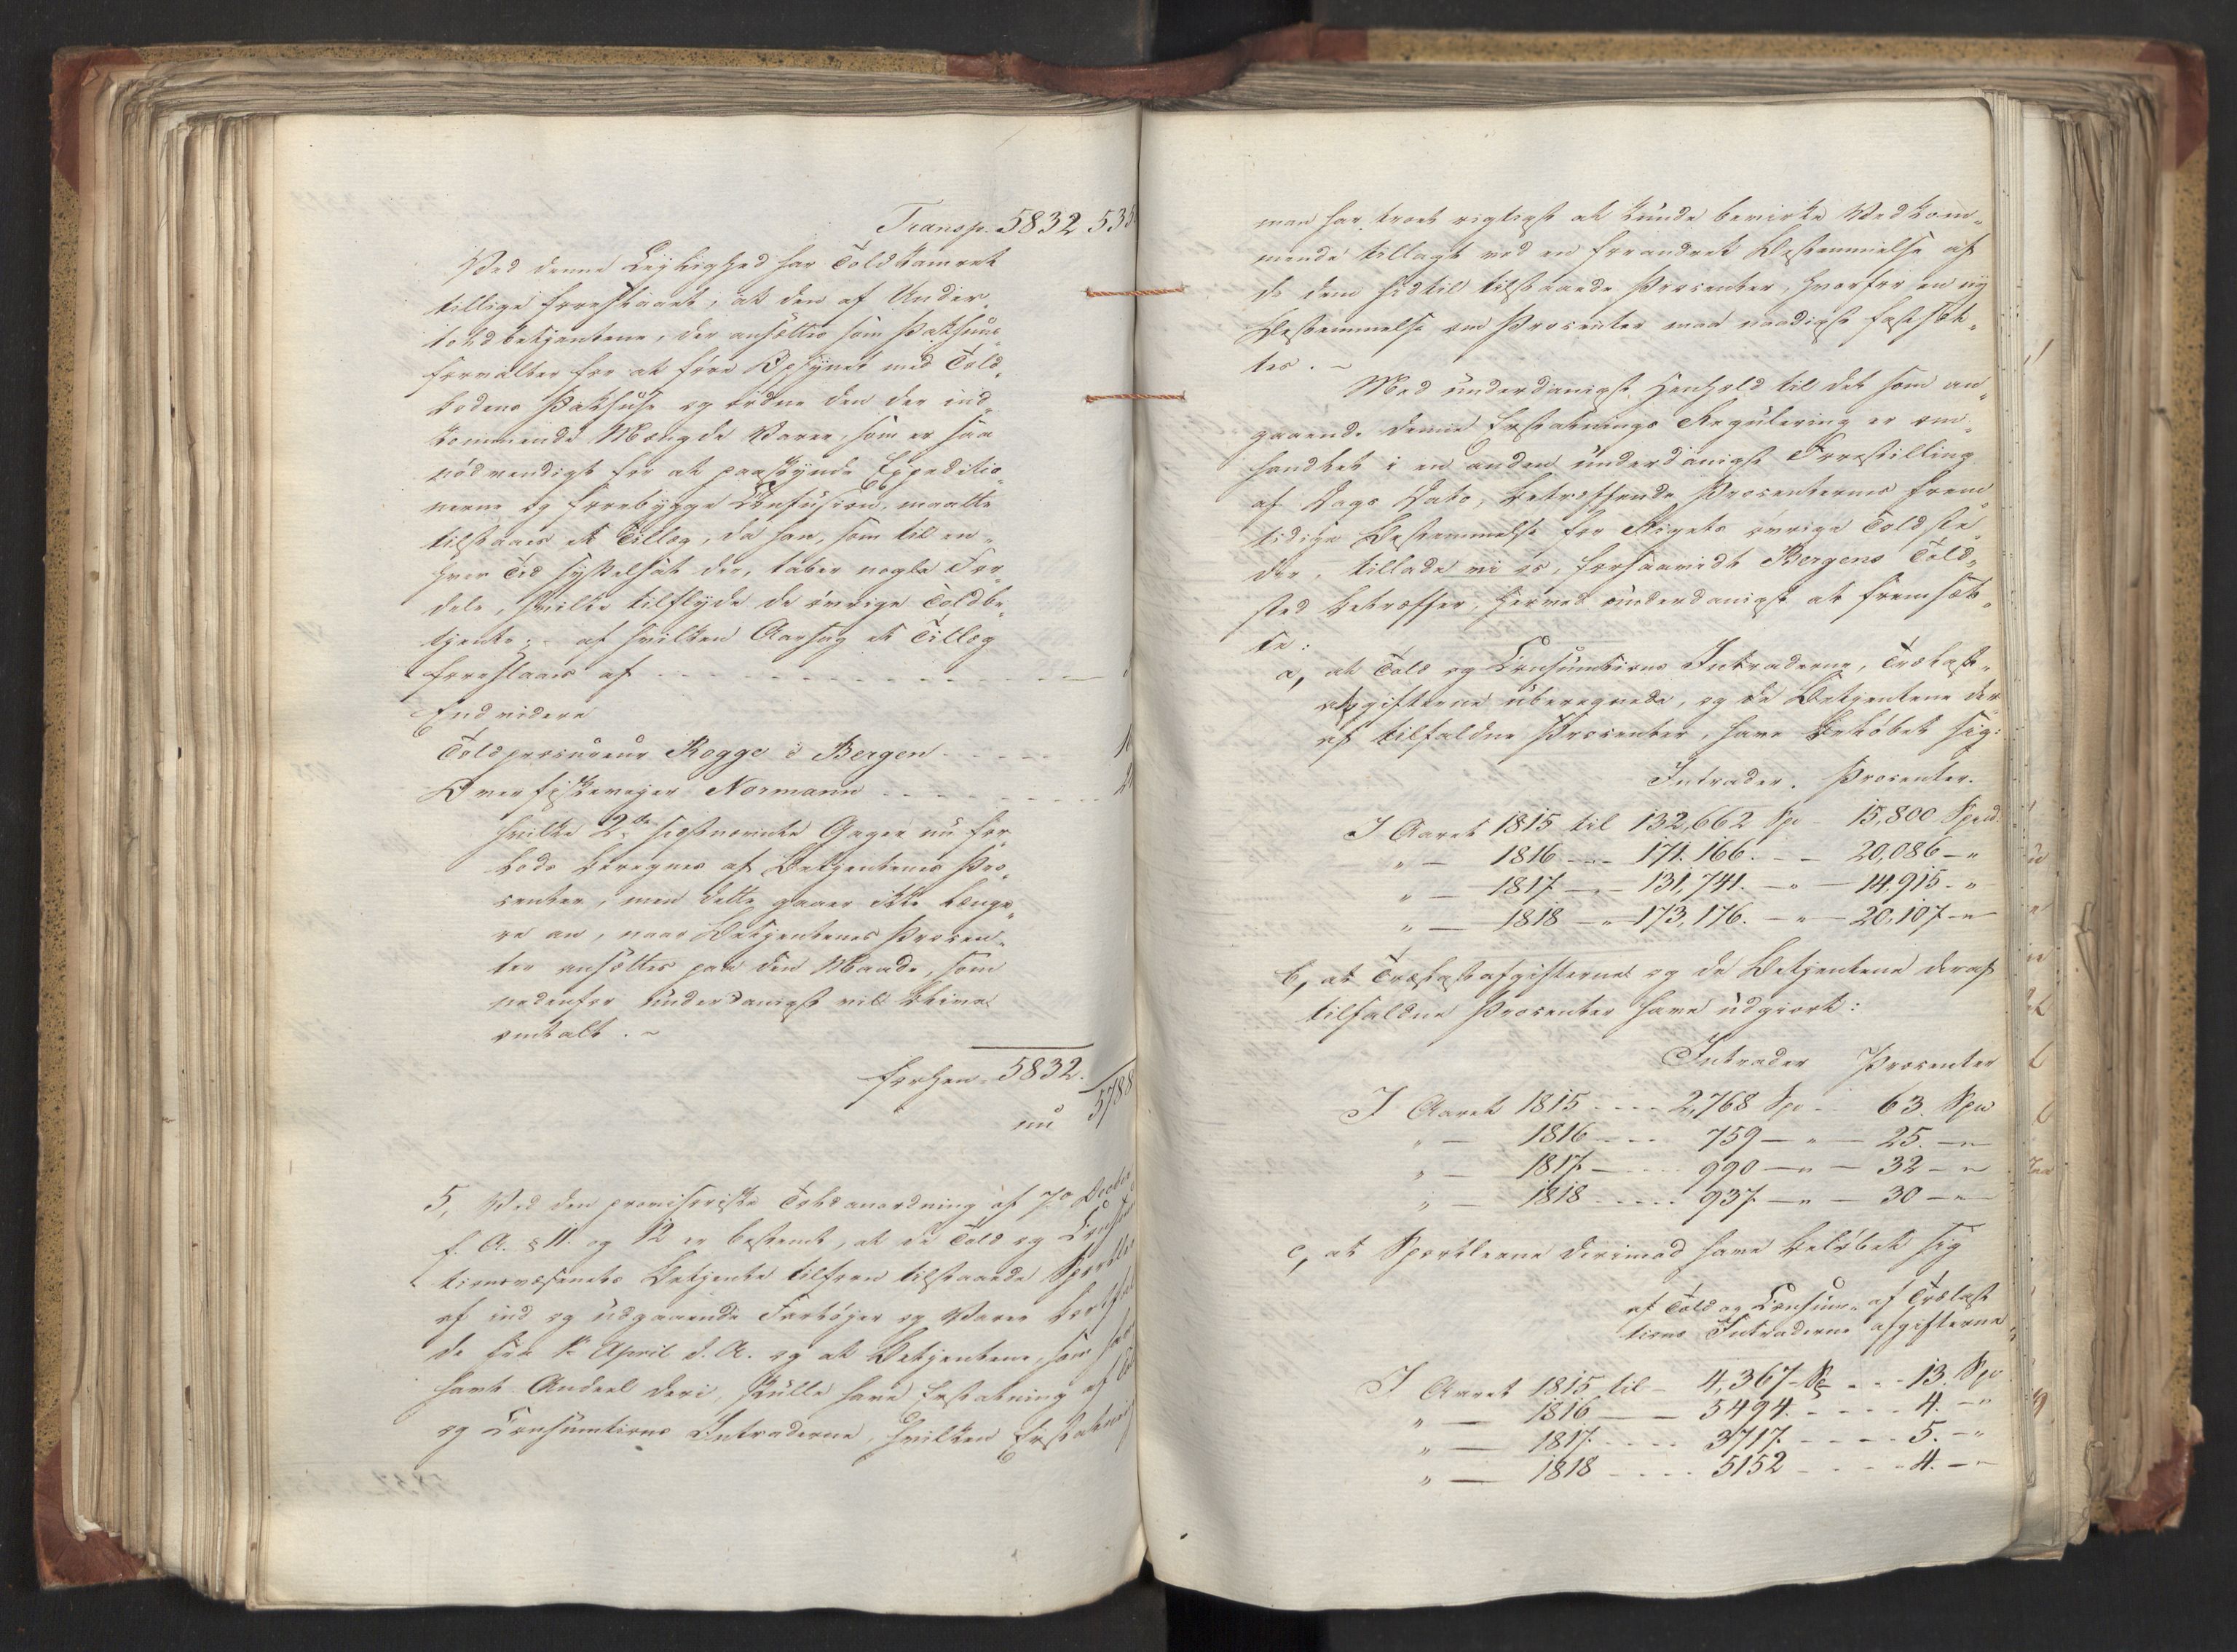 Transp. 5832 535
Ved denne Leylighed har Toldkamret
tillige foreslaaet, at den af Under-
toldbetjentene, der ansættes som Pakhuus-
forvalter for at føre Opsynet med Told-
bodens Pakhuse og ordne den der ind-
kommende Mængde Varer, som er saa
nødvendigt for at paaskynde Expeditio-
nerne og forebygge Confusion, maatte
tilstaaes et Tillæg, da han, som til en-
hver Tid sysselsat der, taber nogle For-
dele, hvilke tilflyde de øvrige Toldbe-
tjente; af hvilken Aarsag et Tillæg
foreslaaes af
Endvidere
Toldprocureur Rogge i Bergen
Overfiskeveyer Normann
hvilke 2de sidstnævnte Gager nu for-
lods beregnes af Betjentenes Pro-
center, men dette gaaer ikke længe-
re an, naar Betjentenes Procen-
ter ansættes paa den Maade, som
nedenfor underdanigst vil blive
omtalt. ~
forhen 5832.
nu 5788
5, Ved den provisoriske Toldanordning af 7de Decbr
f. A. § 11 og 12 er bestemt, at de Told og Consum
tionsvæsenets Betjente tilforn tilstaaede Sportler
af ind og udgaaende Fartøjer og Varer bortfal
de fra 1ste April d. A. og at Betjentene, som have
havt Andeel deri, skulle have Erstatning af Told
og Consumtions Intraderne, hvilken Erstatning
man har troet rigtigst at kunde bevirke Vedkom-
mende tillagt ved en forandret Bestemmelse af
de dem hidtil tilstaaede Procenter, hvorfor en ny
Bestemmelse om Procenter maa naadigst fastsæt-
tes. ~
Med underdanigst Henhold til det som an-
gaaende denne Erstatnings Regulering er om-
handlet i en anden underdanigst Forestilling
af Dags Dato, betræffende Procenternes frem-
tidige Bestemmelse for Rigets øvrige Toldste-
der, tillade vi os, forsaavidt Bergens Told-
sted betræffer, herved underdanigst at fremsæt-
te:
a, at Told og Consumtions Intraderne, Trælast-
afgifterne uberegnede, og de Betjentene der-
af tilfaldne Procenter, have beløbet sig:
Intrader. Procenter.
I Aaret 1815 til 132,662 Sp - 15,800 Spd.
" — 1816 - - 171.166. - - 20,086 - "
" — 1817 - - 131,741. - " - 14,915 - "
" — 1818 - " 173,176. - " - 20,107 - "
b, at Trælastafgifterne og de Betjentene deraf
tilfaldne Procenter have udgiort:
Intrader Procenter
I Aaret 1815 - - - 2,768 Sp - 63. Spd
" — 1816 - - - 759 - " - 25. - "
" — 1817 - - - 990 - " - 32 - "
" — 1818 - - - 937 - " - 30 - "
c, at Sportlerne derimod have beløbet sig
af Told og Consum- af Trælast
tions Intraderne afgifterne
I Aaret 1815 til - 4,367 Sp - - 13. Spd
" — 1816 — 5494. - - - 4. - "
" — 1817 - - - 3717. - - - 5. - "
" — 1818 - - - 5152 - - - 4. - "